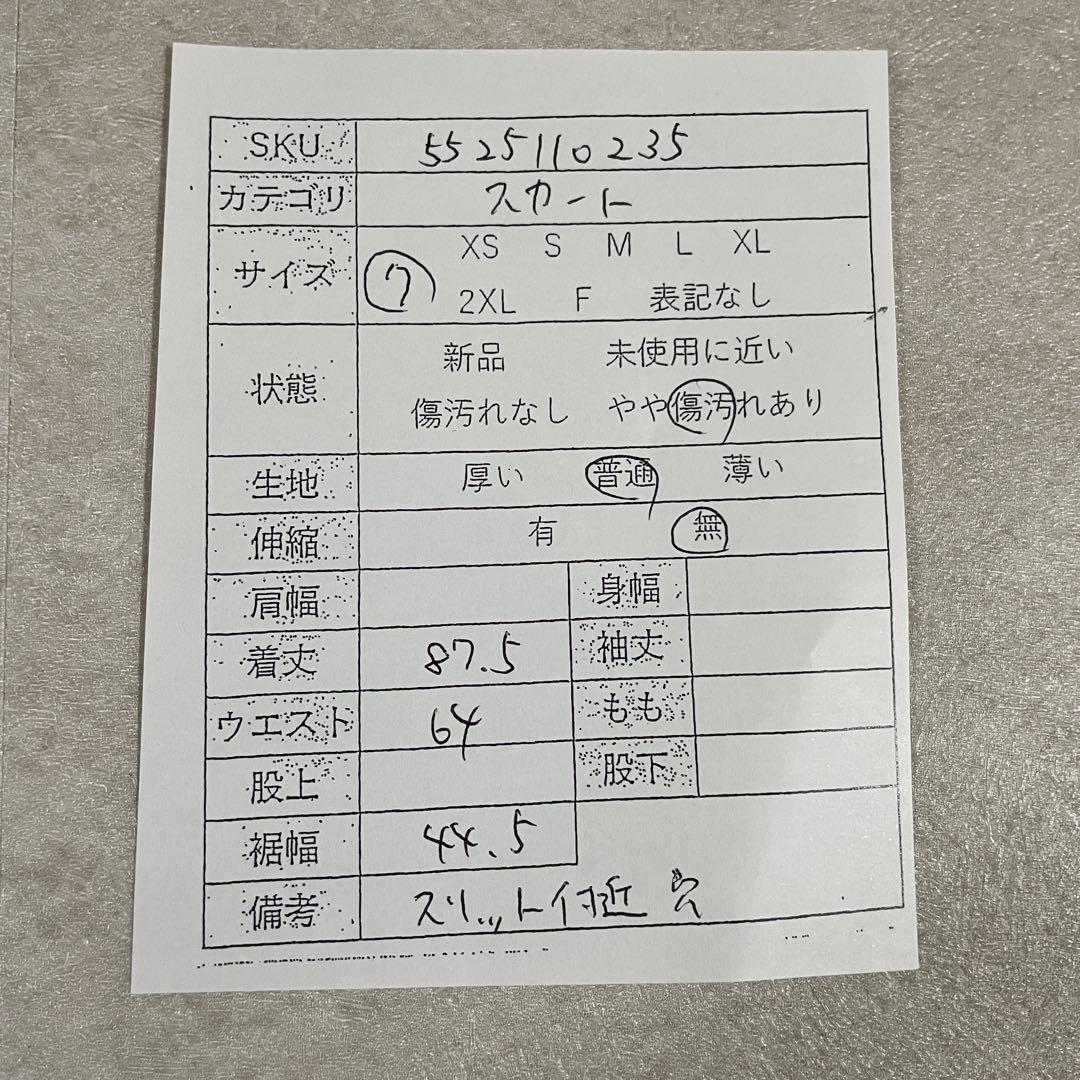 SKU 5525110235
カテゴリ スカート
サイズ 7 XS S M L XL
2XL F 表記なし
状態 新品 未使用に近い
傷汚れなし やや傷汚れあり
生地 厚い 普通 薄い
伸縮 有 無
肩幅 身幅
着丈 87.5 袖丈
ウエスト 64 もも
股上 股下
裾幅 44.5
備考 スリット付近 穴